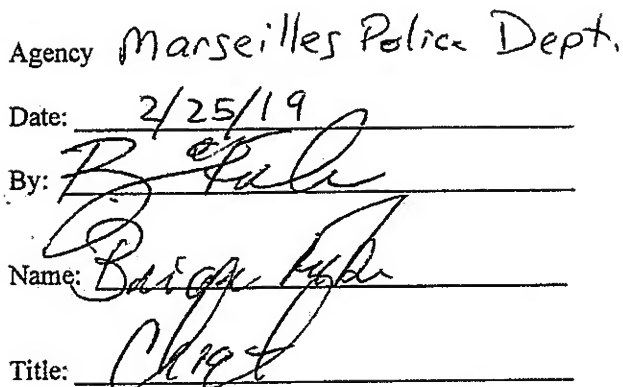 Agency Marseilles Police Dept.
Date: 2/25/19
By:
Name: Brian
Title: Chief